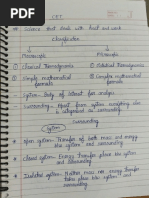 CET
* Science that deals with heat and work
Classification
Macroscopic Microscopic
① Classical Thermodynamics ① Statistical Thermodynamics
② Simple mathematical ② Complex mathematical
formula formula
System - Body of interest for analysis
Surrounding -
is integrated as surrounding.
System
Surrounding
* Open system - Transfer of both mass and energy
b/w system and surrounding
* Closed system - Energy Transfer place b/w system
and surrounding.
* Isolated system - Neither mass nor energy transfer
takes place b/w system and
surrounding